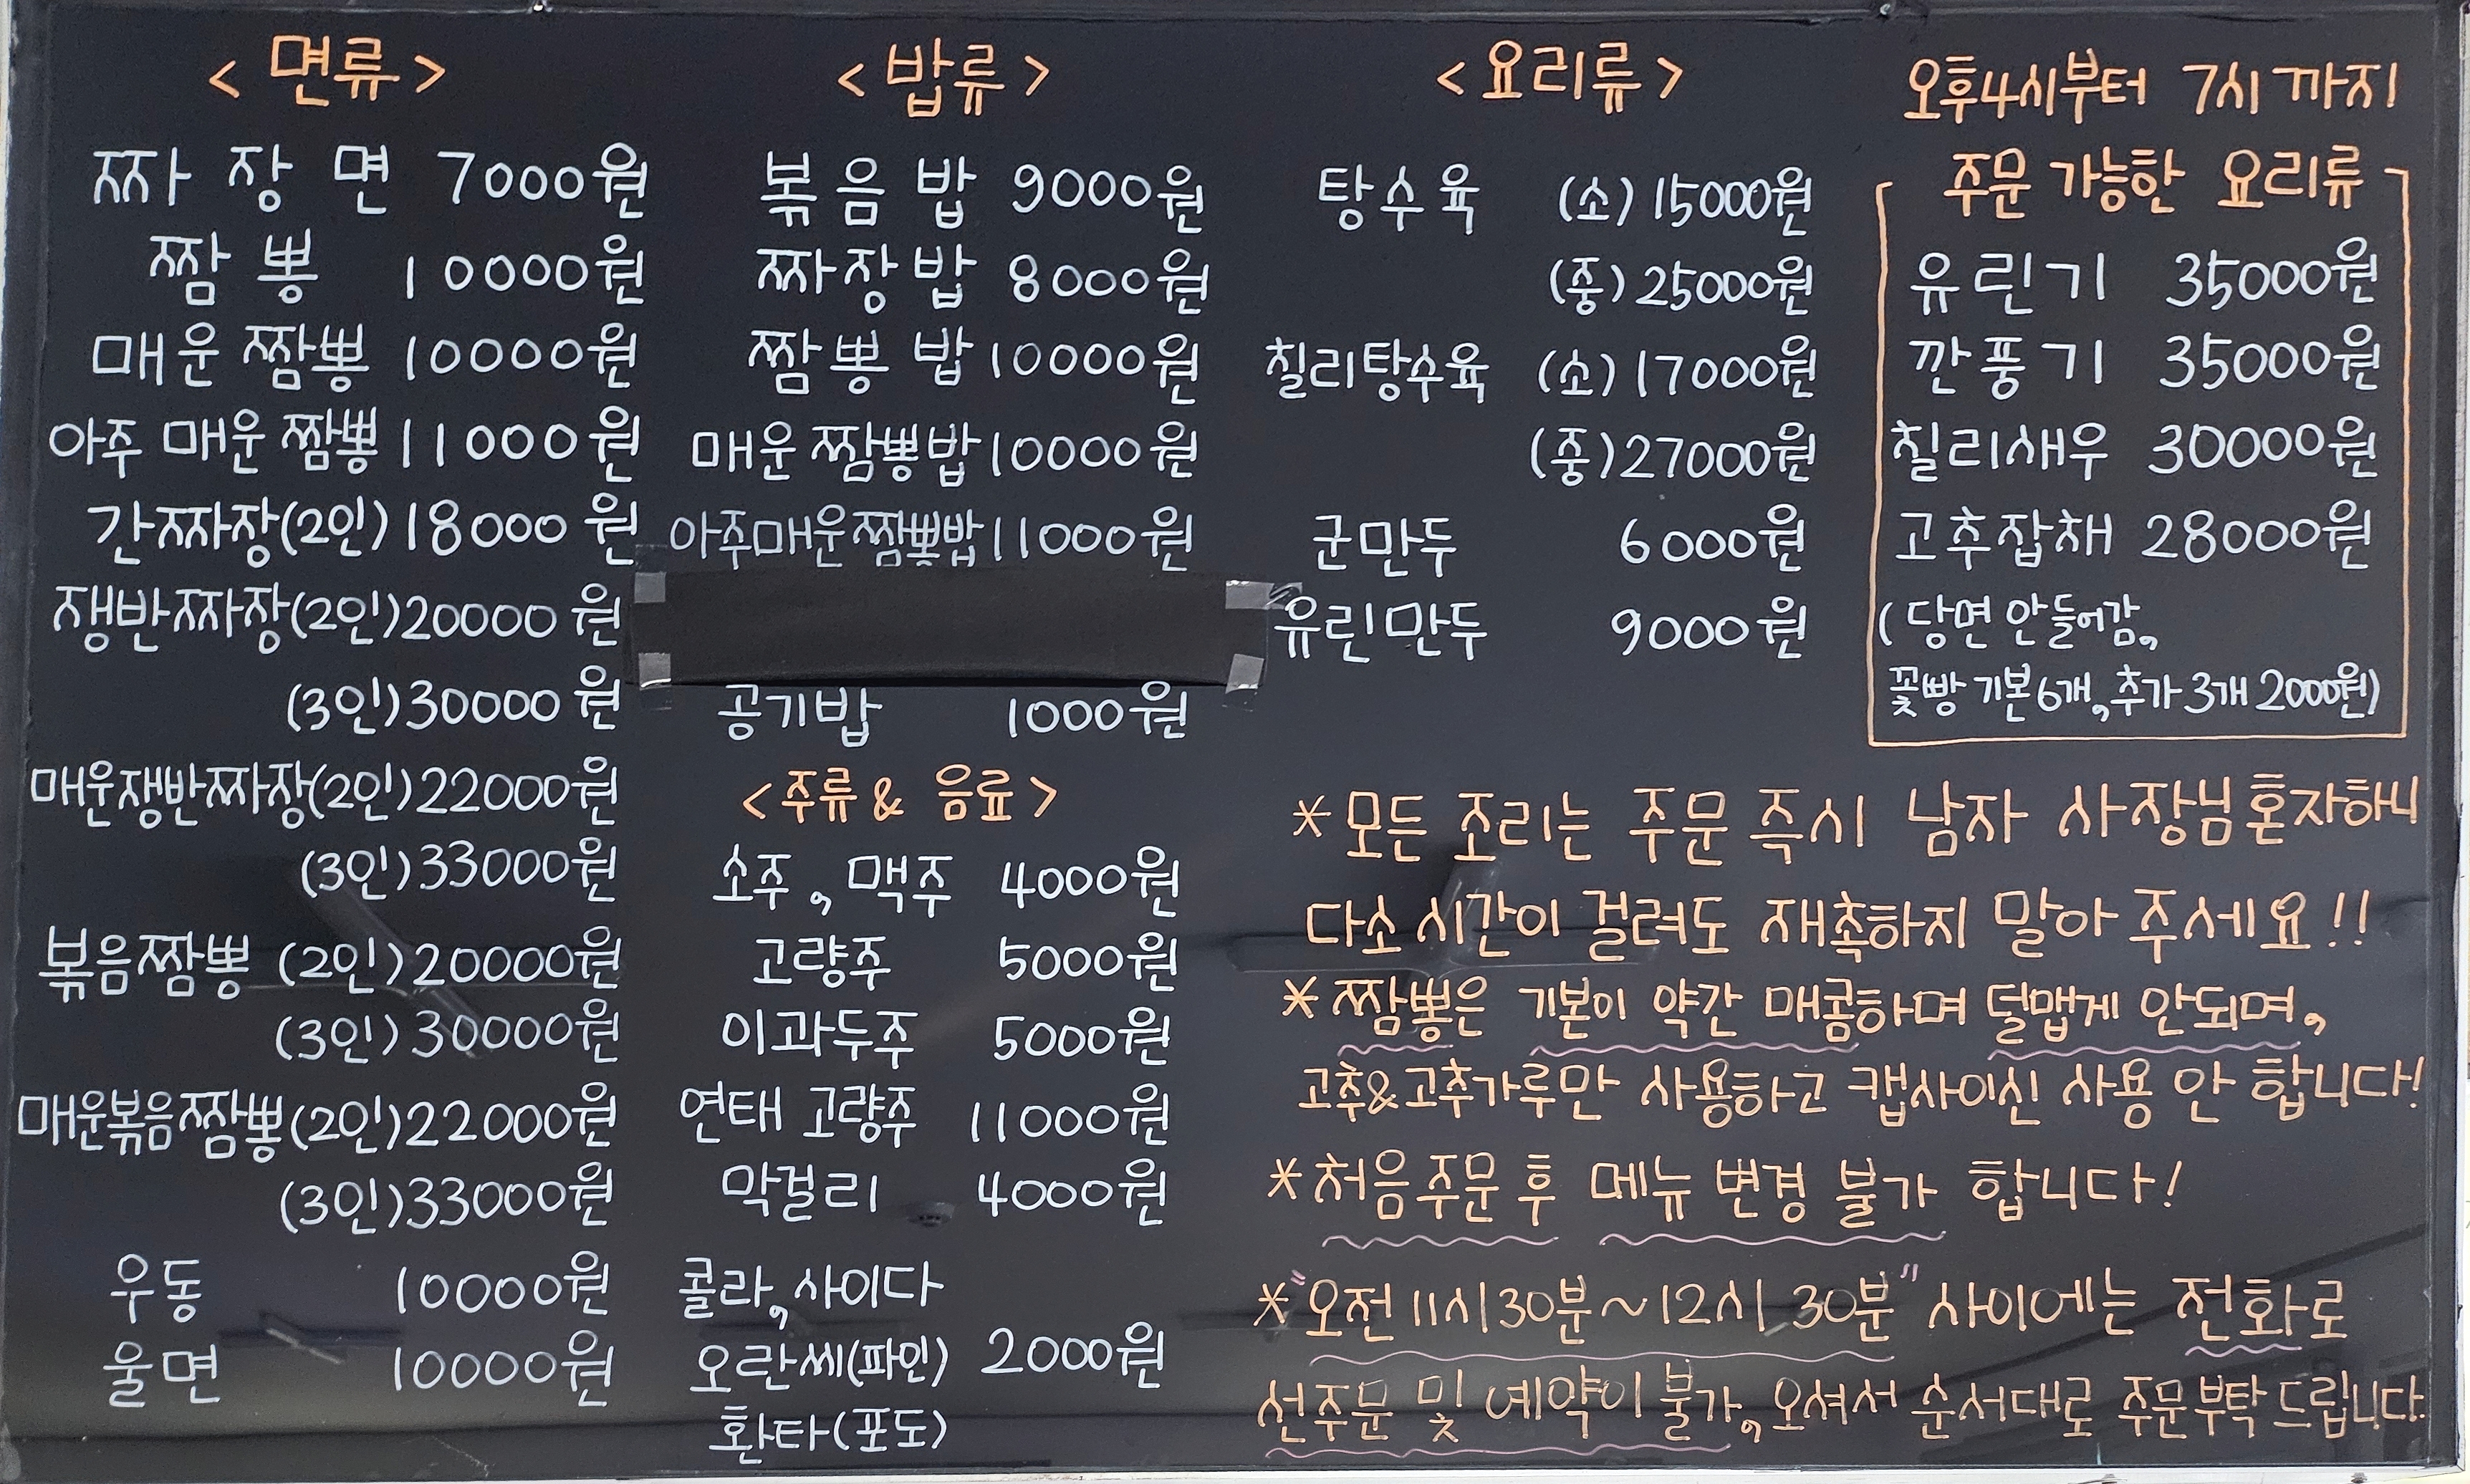 <면류>
짜장면 7000원
짬뽕 10000원
매운 짬뽕 10000원
아주 매운 짬뽕 11000원
간짜장(2인) 18000원
쟁반짜장(2인) 20000원
(3인) 30000원
매운쟁반짜장(2인) 22000원
(3인) 33000원
볶음짬뽕 (2인) 20000원
(3인) 30000원
매운볶음짬뽕(2인) 22000원
(3인) 33000원
우동 10000원
울면 10000원
<밥류>
볶음밥 9000원
짜장밥 8000원
짬뽕밥 10000원
매운 짬뽕밥 10000원
아주매운짬뽕밥 11000원
공기밥 1000원
<주류 & 음료>
소주, 맥주 4000원
고량주 5000원
이과두주 5000원
연태 고량주 11000원
막걸리 4000원
콜라, 사이다
오란씨(파인) 2000원
환타(포도)
<요리류>
탕수육 (소) 15000원
(중) 25000원
칠리탕수육 (소) 17000원
(중) 27000원
군만두 6000원
유린만두 9000원
오후4시부터 7시까지
주문 가능한 요리류
유린기 35000원
깐풍기 35000원
칠리새우 30000원
고추잡채 28000원
(당면 안들어감,
꽃빵 기본6개, 추가 3개 2000원)
*모든 조리는 주문 즉시 남자 사장님 혼자하니
다소 시간이 걸려도 재촉하지 말아 주세요!!
*짬뽕은 기본이 약간 매콤하며 덜맵게 안되며,
고추&고추가루만 사용하고 캡사이신 사용 안 합니다!
*처음주문 후 메뉴 변경 불가 합니다!
*"오전 11시30분~12시 30분" 사이에는 전화로
선주문 및 예약이 불가, 오셔서 순서대로 주문부탁드립니다.